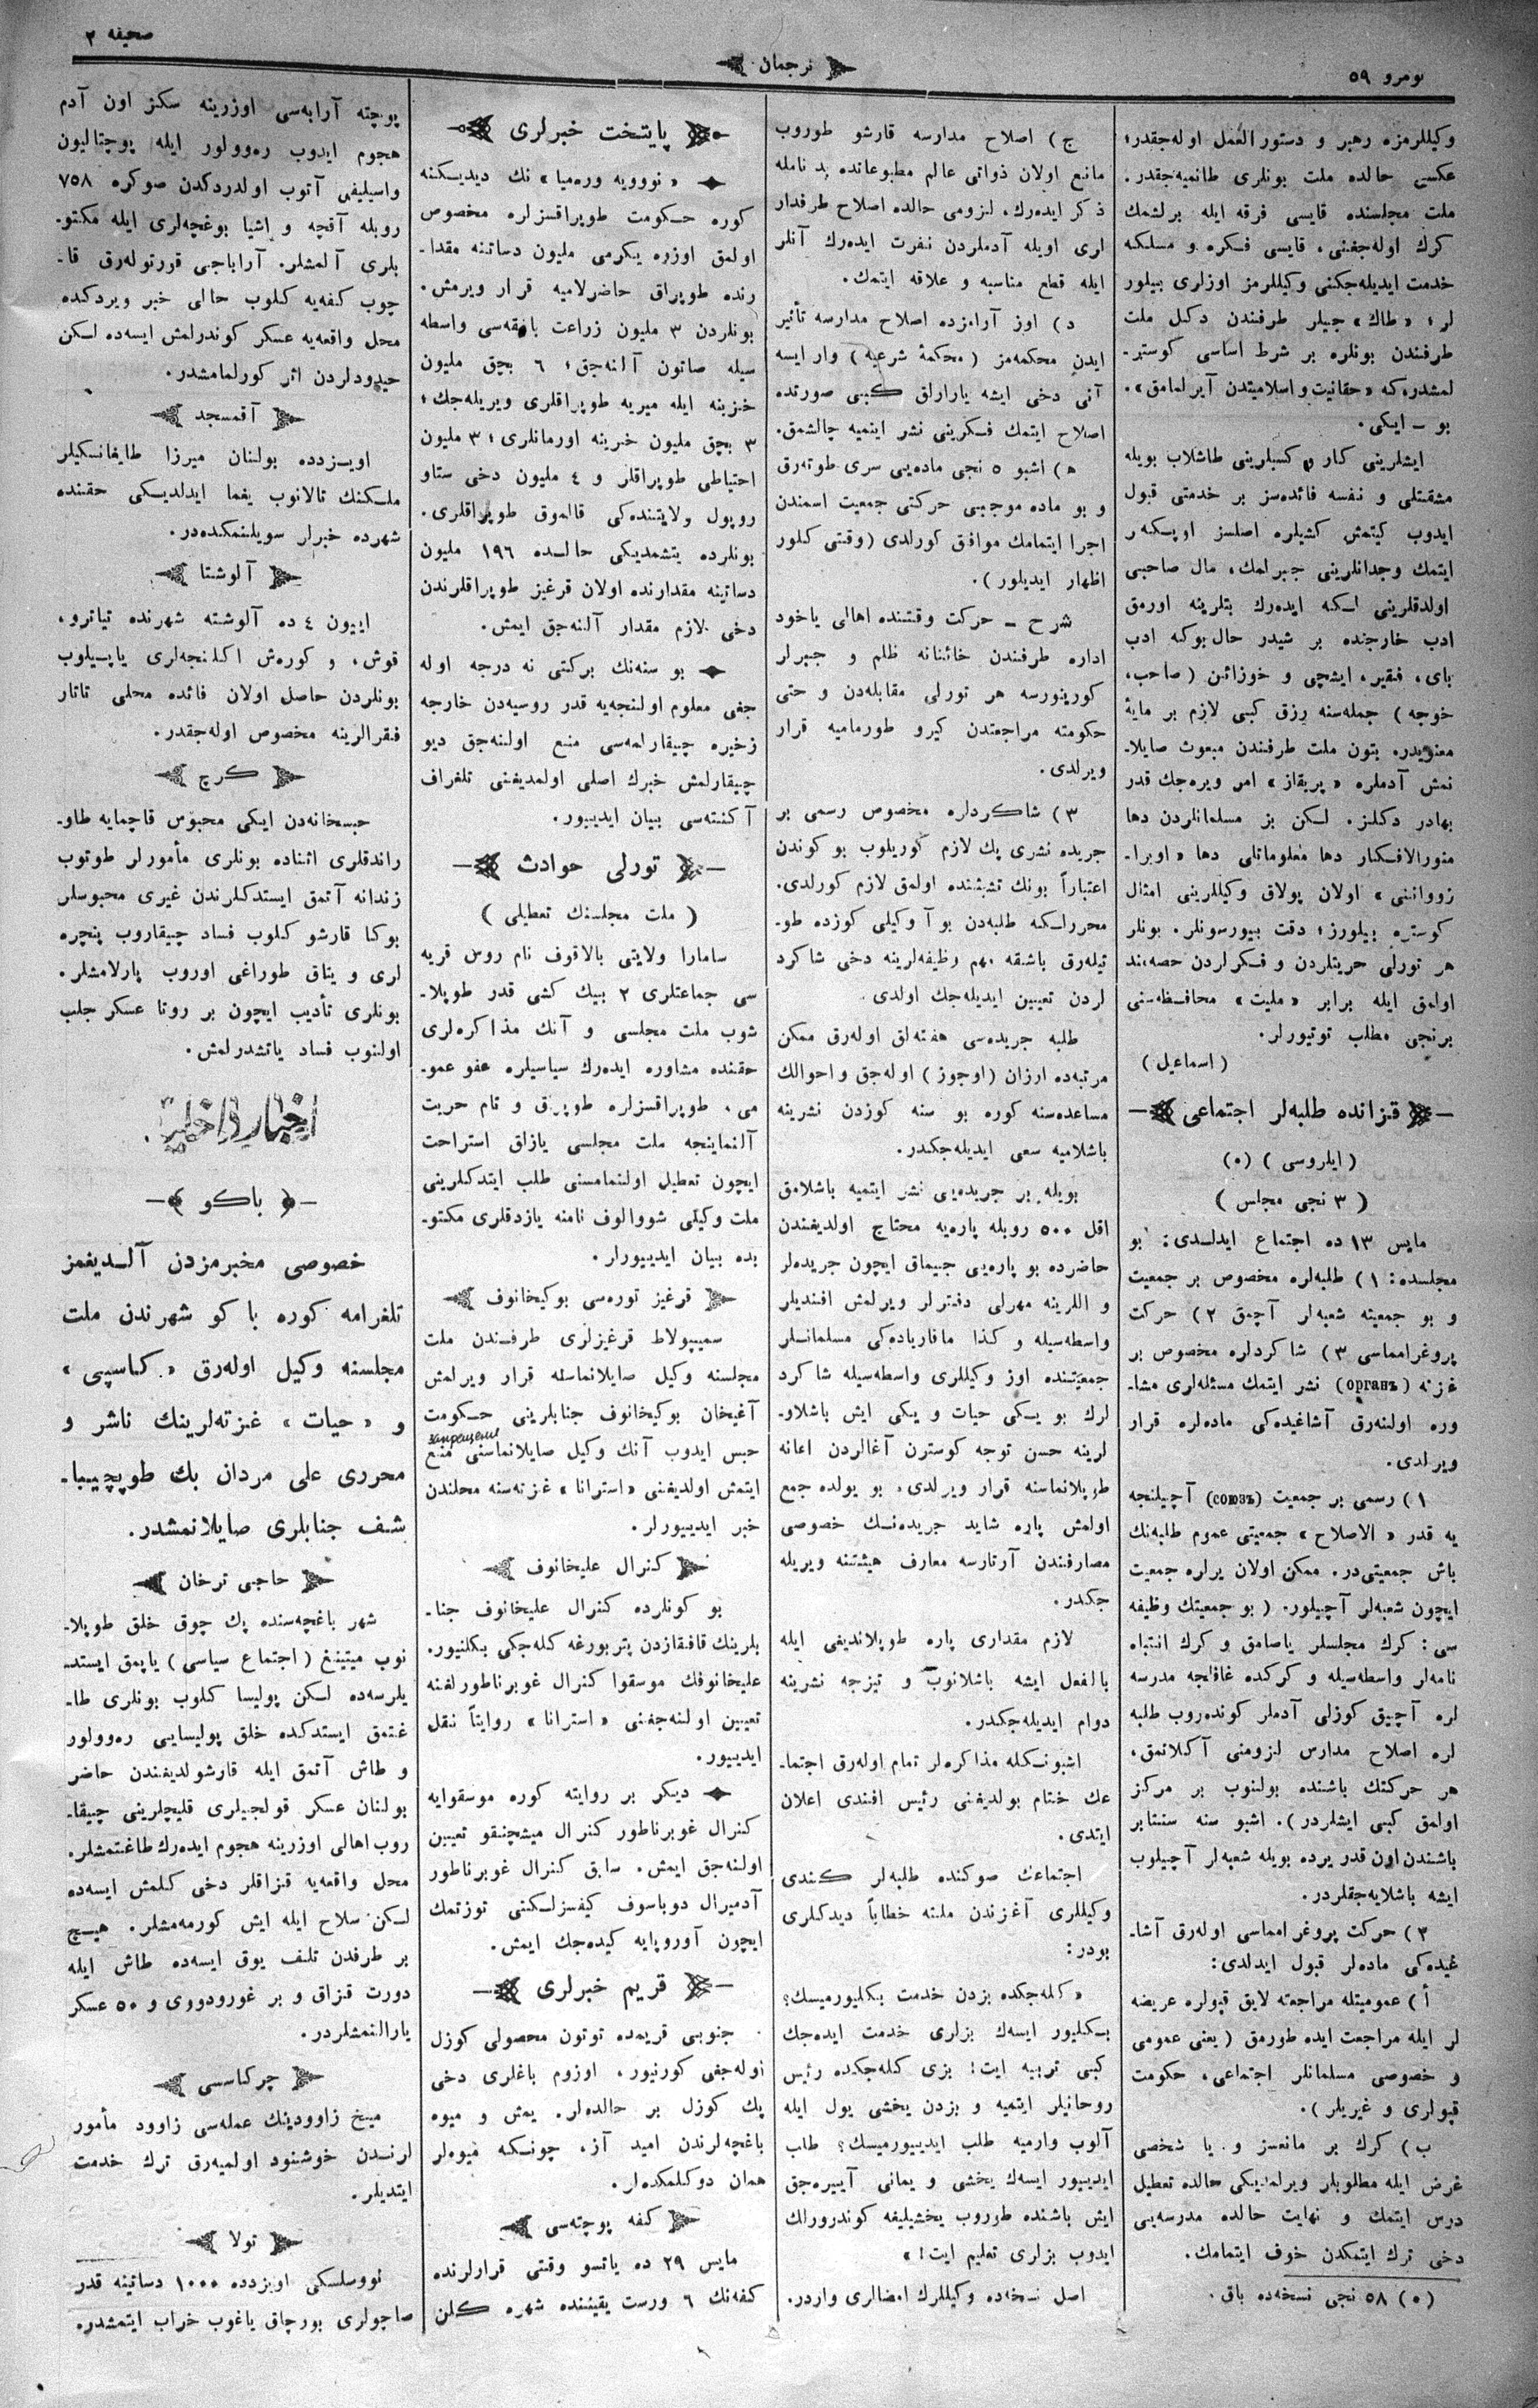 نومرو ٥٩
ترجمان
صحیفه ٢
وكیللرمزه رهبر و دستور العمل اوله‌جقدر؛
عكسی حالده ملت بونلری طانمیه‌جقدر.
ملت مجلسنده قایسی فرقه ایله برلشمك
كرك اوله‌جغنی، قایسی فكره و مسلكه
خدمت ایدیله‌جكنی وكیللرمز اوزلری بیلور
لر؛ «طاك» جیلر طرفندن دكل ملت
طرفندن بونلره بر شرط اساسی كوستر-
لمشدره كه «حقانیت و اسلامیتدن آیرلمامق».
بو - ایكی.
ایشلرینی كار و كسبلرینی طاشلاب بویله
مشقتلی و نفسه فائده‌سز بر خدمتی قبول
ایدوب كیتمش كشیلره اصلسز اوپكه‌لر
ایتمك وجدانلرینی جبرلمك، مال صاحبی
اولدقلرینی لكه ایده‌رك بتلرینه اورمق
ادب خارجنده بر شیدر حال بوكه ادب
بای، فقیر، ایشچی و خوزائن (صاحب،
خوجه) جمله‌سنه رزق كبی لازم بر مایهٔ
معنویدر. بتون ملت طرفندن مبعوث صایلا-
نمش آدملره «پریقاز» امر ویره‌جك قدر
بهادر دكلز. لكن بز مسلمانلردن دها
منور الافكار دها معلوماتلی دها «اوبرا-
زووانی» اولان پولاق وكیللرینی امثال
كوستره بیلورز؛ دقت بیورسونلر. بونلر
هر تورلی حریتلردن و فكرلردن حصه‌مند
اولمق ایله برابر «ملیت» محافظه‌سنی
برنجی مطلب توتیورلر.
(اسماعیل)
قزانده طلبه‌لر اجتماعی
(ایلروسی) (٥)
(٣ نجی مجلس)
مایس ١٣ ده اجتماع ایدلدی: بو
مجلسده: ١) طلبه‌لره مخصوص بر جمعیت
و بو جمعیته شعبه‌لر آچمق ٢) حركت
پروغرامماسی ٣) شاكردلره مخصوص بر
غزته (органъ) نشر ایتمك مسئله‌لری مشا-
وره اولنه‌رق آشاغیده‌كی ماده‌لره قرار
ویرلدی.
١) رسمی بر جمعیت (союзъ) آچیلنجه
یه قدر «الاصلاح» جمعیتی عموم طلبه‌نك
باش جمعیتی‌در. ممكن اولان یرلره جمعیت
ایچون شعبه‌لر آچیلور. (بو جمعیتك وظیفه
سی: كرك مجلسلر یاصامق و كرك انتباه
نامه‌لر واسطه‌سیله و كركده غافلجه مدرسه
لره آچیق كوزلی آدملر كونده‌روب طلبه
لره اصلاح مدارس لزومنی آكلاتمق،
هر حركتك باشنده بولنوب بر مركز
اولمق كبی ایشلردر). اشبو سنه سنتتابر
باشندن اون قدر یرده بویله شعبه‌لر آچیلوب
ایشه باشلایه‌جقلردر.
٢) حركت پروغرامماسی اوله‌رق آشا-
غیده‌كی ماده‌لر قبول ایدلدی:
أ) عمومیتله مراجعته لایق قپولره عریضه
لر ایله مراجعت ایده طورمق (یعنی عمومی
و خصوصی مسلمانلر اجتماعی، حكومت
قپولری و غیریلر).
ب) كرك بر مانعسز و یا شخصی
غرض ایله مطلوبلر ویرلمدیكی حالده تعطیل
درس ایتمك و نهایت حالده مدرسه‌یی
دخی ترك ایتمكدن خوف ایتمامك.
(٥) ٥٨ نجی نسخه‌ده باق.
ج) اصلاح مدارسه قارشو طوروب
مانع اولان ذواتی عالم مطبوعانده بد نامله
ذكر ایده‌رك، لزومی حالده اصلاح طرفدار
لری اویله آدملردن نفرت ایده‌رك آنلر
ایله قطع مناسبه و علاقه ایتمك.
د) اوز آرامزده اصلاح مدارسه تأثیر
ایدن محكمه‌مز (محكمهٔ شرعیه) وار ایسه
آنی دخی ایشه یارارلق كبی صورتده
اصلاح ایتمك فكرینی نشر ایتمیه چالشمق.
ه) اشبو ٥ نجی ماده‌یی سری طوته‌رق
و بو ماده موجبی حركتی جمعیت اسمندن
اجرا ایتمامك موافق كورلدی (وقتی كلور
اظهار ایدیلور).
شرح - حركت وقتنده اهالی یاخود
اداره طرفندن خائنانه ظلم و جبرلر
كورینورسه هر تورلی مقابله‌دن و حتی
حكومته مراجعتدن كیرو طورمامیه قرار
ویرلدی.
٣) شاكردلره مخصوص رسمی بر
جریده نشری پك لازم كوریلوب بو كوندن
اعتباراً بونك تشبثنده اولمق لازم كورلدی.
محررلكه طلبه‌دن بوآ وكیلی كوزده طو-
تیله‌رق باشقه مهم وظیفه‌لرینه دخی شاكرد
لردن تعیین ایدیله‌جك اولدی.
طلبه جریده‌سی هفته‌لق اوله‌رق ممكن
مرتبه‌ده ارزان (اوجوز) اوله‌جق و احوالك
مساعده‌سنه كوره بو سنه كوزدن نشرینه
باشلامیه سعی ایدیله‌جكدر.
بویله بر جریده‌یی نشر ایتمیه باشلامق
اقل ٥٠٠ روبله پاره‌یه محتاج اولدیغندن
حاضرده بو پاره‌یی جییماق ایچون جریده‌لر
و اللرینه مهرلی دفترلر ویرلمش افندیلر
واسطه‌سیله و كذا ماقاریاده‌كی مسلمانلر
جمعیتنده اوز وكیللری واسطه‌سیله شاكرد
لرك بو یكی حیات و یكی ایش باشلاو-
لرینه حسن توجه كوسترن آغالردن اعانه
طوپلانماسنه قرار ویرلدی. بو یولده جمع
اولمش پاره شاید جریده‌نك خصوصی
مصارفندن آرتارسه معارف هیئتنه ویریله
جكدر.
لازم مقداری پاره طوپلاندیغی ایله
بالفعل ایشه باشلانوب و تیزجه نشرینه
دوام ایدیله‌جكدر.
اشبونكله مذاكره‌لر تمام اوله‌رق اجتما-
عك ختام بولدیغنی رئیس افندی اعلان
ایتدی.
اجتماعك صوكنده طلبه‌لر كندی
وكیللری آغزندن ملته خطاباً دیدكلری
بودر:
«كله‌جكده بزدن خدمت بكلیورمیسك؟
بكلیور ایسه‌ك بزلری خدمت ایده‌جك
كبی تربیه ایت! بزی كله‌جكده رئیس
روحانیلر ایتمیه و بزدن یخشی یول ایله
آلوب وارمیه طلب ایدییورمیسك؟ طلب
ایدییور ایسه‌ك یخشی و یمانی آییره‌جق
ایش باشنده طوروب یخشیلیغه كوندرورلك
ایدوب بزلری تعلیم ایت!»
اصل نسخه‌ده وكیللرك امضالری واردر.
پایتخت خبرلری
«نوویه وره‌میا» نك دیدیكنه
كوره حكومت طوپراقسزلره مخصوص
اولمق اوزره یكرمی ملیون دساتنه مقدا-
رنده طوپراق حاضرلامیه قرار ویرمش.
بونلردن ٣ ملیون زراعت بانقه‌سی واسطه
سیله صاتون آلنه‌جق؛ ٦ بچق ملیون
خزینه ایله میریه طوپراقلری ویریله‌جك؛
٣ بچق ملیون خزینه اورمانلری؛ ٣ ملیون
احتیاطی طوپراقلر و ٤ ملیون دخی ستاو
روپول ولایتنده‌كی قالموق طوپراقلری.
بونلرده یتشمدیكی حالده ١٩٦ ملیون
دساتینه مقدارنده اولان قرغیز طوپراقلرندن
دخی لازم مقدار آلنه‌جق ایمش.
بو سنه‌نك بركتی نه درجه اوله
جغی معلوم اولنجه‌یه قدر روسیه‌دن خارجه
زخیره چیقارلمه‌سی منع اولنه‌جق دیو
چیقارلمش خبرك اصلی اولمدیغنی تلغراف
آكنته‌سی بیان ایدییور.
تورلی حوادث
(ملت مجلسنك تعطیلی)
سامارا ولایتی بالاقوف نام روس قریه
سی جماعتلری ٢ بیك كشی قدر طوپلا-
شوب ملت مجلسی و آنك مذاكره‌لری
حقنده مشاوره ایده‌رك سیاسیلره عفو عمو-
می، طوپراقسزلره طوپرق و تام حریت
آلنماینجه ملت مجلسی یازلق استراحت
ایچون تعطیل اولنمامسنی طلب ایتدكلرینی
ملت وكیلی شووالوف نامنه یازدقلری مكتو-
بده بیان ایدییورلر.
قرغیز توره‌سی بوكیخانوف
سمیپولاط قرغیزلری طرفندن ملت
مجلسنه وكیل صایلانماسله قرار ویرلمش
آغیخان بوكیخانوف جنابلرینی حكومت
запрещене
حبس ایدوب آنك وكیل صایلانماسنی منع
ایتمش اولدیغنی «استرانا» غزته‌سنه محلندن
خبر ایدییورلر.
كنرال علیخانوف
بو كونلرده كنرال علیخانوف جنا-
بلرینك قافقازدن پتربورغه كله‌جكی بكلنیور.
علیخانوفك موسقوا كنرال غوبرناطورلغنه
تعیین اولنه‌جغنی «استرانا» روایتاً نقل
ایدییور.
دیكر بر روایته كوره موسقوایه
كنرال غوبرناطور كنرال میشچنقو تعیین
اولنه‌جق ایمش. سابق كنرال غوبرناطور
آدمیرال دوباسوف كیفسزلكنی توزتمك
ایچون آوروپایه كیده‌جك ایمش.
قریم خبرلری
جنوبی قریمده توتون محصولی كوزل
اوله‌جغی كورنیور. اوزوم باغلری دخی
پك كوزل بر حالده‌لر. یمش و میوه
باغچه‌لرندن امید آز، چونكه میوه‌لر
همان دوكلمكده‌لر.
كفه پوچته‌سی
مایس ٢٩ ده یاتسو وقتی قرارلرنده
كفه‌نك ٦ ورست یقیننده شهره كلن
پوچته آرابه‌سی اوزرینه سكز اون آدم
هجوم ایدوب ره‌وولور ایله پوچتالیون
واسیلیفی آتوب اولدردكدن صوكره ٧٥٨
روبله آقچه و اشیا بوغچه‌لری ایله مكتو-
بلری آلمشلر. آراباجی قورتوله‌رق قا-
چوب كفه‌یه كلوب حالی خبر ویردكده
محل واقعه‌یه عسكر كوندرلمش ایسه‌ده لكن
حیدودلردن اثر كورلمامشدر.
آقمسجد
اویزدده بولنان میرزا طایغانسكیلر
ملكنك تالانوب یغما ایدلدیكی حقنده
شهرده خبرلر سویلنمكده‌در.
آلوشتا
اییون ٤ ده آلوشته شهرنده تیاترو،
قوش، و كوره‌ش اكلنجه‌لری یاپیلوب
بونلردن حاصل اولان فائده محلی تاتار
فقرالرینه مخصوص اوله‌جقدر.
كرچ
حبسخانه‌دن ایكی محبوس قاچمایه طاو-
راندقلری اثناده بونلری مأمورلر طوتوب
زندانه آتمق ایستدكلرندن غیری محبوسلر
بوكا قارشو كلوب فساد چیقاروب پنچره
لری و یتاق طوراغی اوروب پارلامشلر.
بونلری تأدیب ایچون بر روتا عسكر جلب
اولنوب فساد یاتشدرلمش.
اخبار داخلیه
باكو
خصوصی مخبرمزدن آلدیغمز
تلغرامه كوره باكو شهرندن ملت
مجلسنه وكیل اوله‌رق «كاسپی»
و «حیات» غزته‌لرینك ناشر و
محرری علی مردان بك طوپچیبا-
شف جنابلری صایلانمشدر.
حاجی ترخان
شهر باغچه‌سنده پك چوق خلق طوپلا-
نوب میتینغ (اجتماع سیاسی) یاپمق ایستد-
یلرسه‌ده لكن پولیسا كلوب بونلری طا-
غتمق ایستدكده خلق پولیسایی ره‌وولور
و طاش آتمق ایله قارشولدیغندن حاضر
بولنان عسكر قولجیلری قلیچلرینی چیقا-
روب اهالی اوزرینه هجوم ایده‌رك طاغتمشلر.
محل واقعه‌یه قزاقلر دخی كلمش ایسه‌ده
لكن سلاح ایله ایش كورمه‌مشلر. هیچ
بر طرفدن تلف یوق ایسه‌ده طاش ایله
دورت قزاق و بر غورودووی و ٥٠ عسكر
یارالنمشلردر.
چركاسسی
میخ زاوودینك عمله‌سی زاوود مأمور
لرندن خوشنود اولمیه‌رق ترك خدمت
ایتدیلر.
تولا
نووسلسكی اویزدده ١٠٠٠ دساتینه قدر
صاچولری بورچاق یاغوب خراب ایتمشدر.